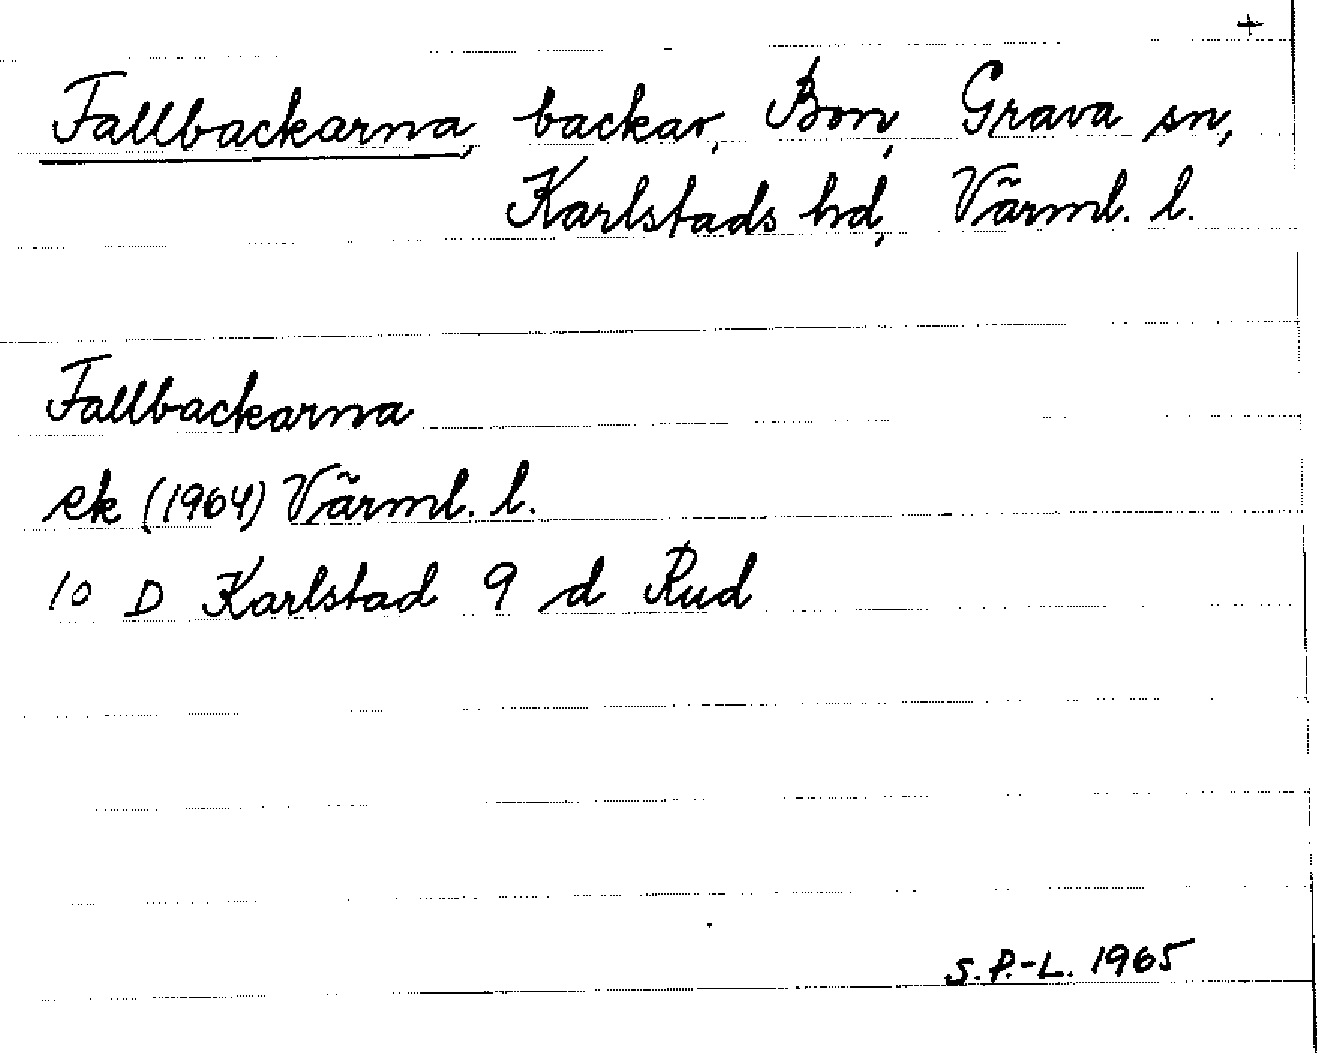 +
Fallbackarna, backar, Bon, Grava sn,
Karlstads hd, Värml. l.
Fallbackarna
ek (1964) Värml. l.
10 D Karlstad 9 d Rud
S.P.-L. 1965